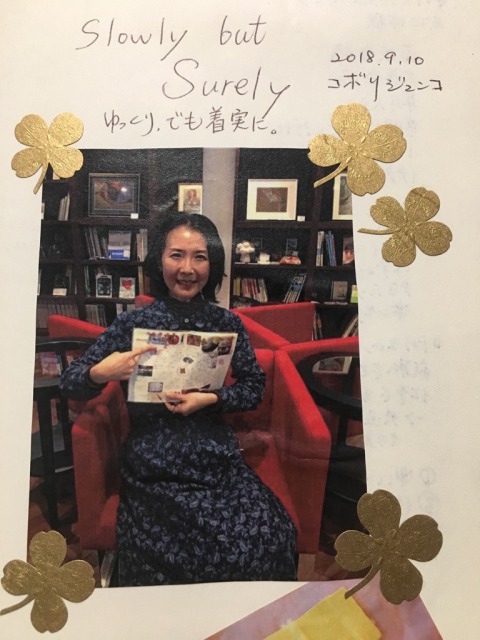 Slowly but
Surely
ゆっくり、でも着実に。
2018.9.10
コボリジュンコ